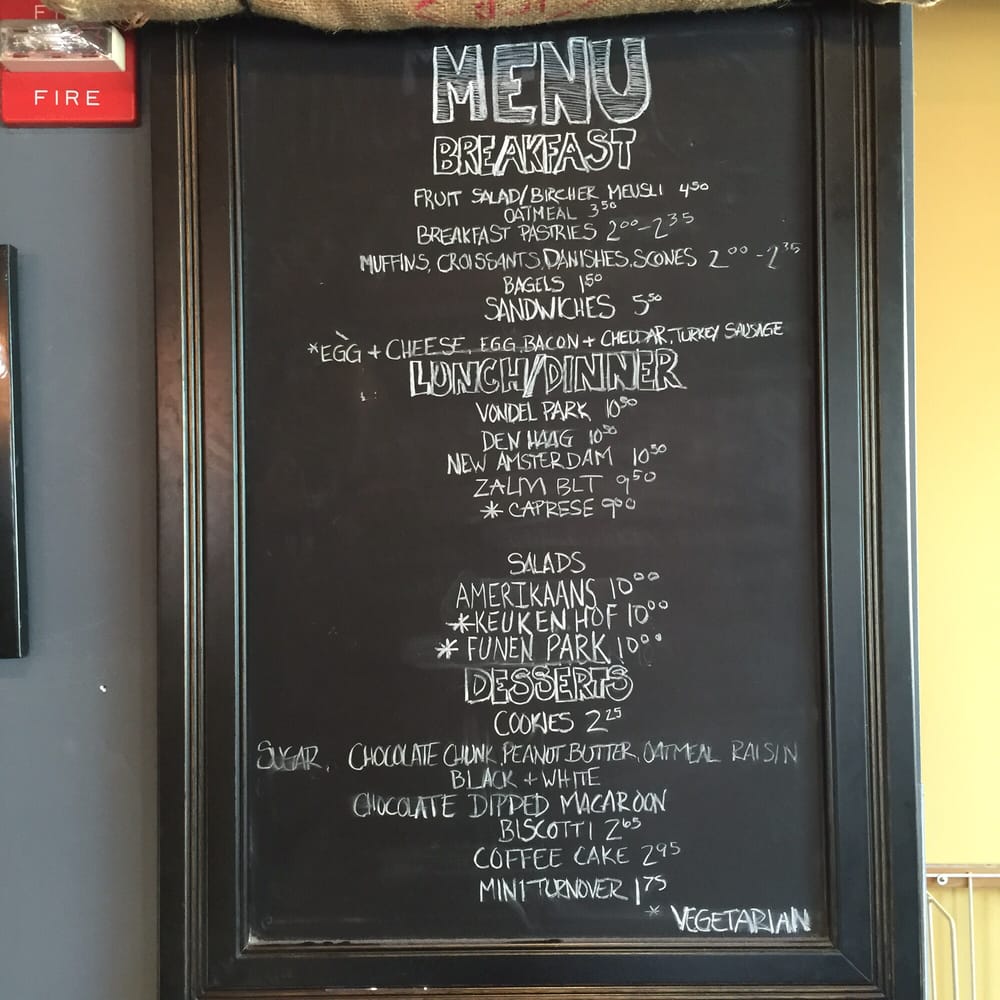 FIRE
MENU
BREAKFAST
FRUIT SALAD/BIRCHER MEUSLI 4⁵⁰
OATMEAL 3⁵⁰
BREAKFAST PASTRIES 2⁰⁰-2³⁵
MUFFINS, CROISSANTS, DANISHES, SCONES 2⁰⁰-2³⁵
BAGELS 1⁵⁰
SANDWICHES 5⁵⁰
*EGG + CHEESE, EGG, BACON + CHEDDAR, TURKEY SAUSAGE
LUNCH/DINNER
VONDEL PARK 10⁵⁰
DEN HAAG 10⁵⁰
NEW AMSTERDAM 10⁵⁰
ZALM BLT 9⁵⁰
* CAPRESE 9⁰⁰
SALADS
AMERIKAANS 10⁰⁰
*KEUKEN HOF 10⁰⁰
* FUNEN PARK 10⁰⁰
DESSERTS
COOKIES 2²⁵
SUGAR, CHOCOLATE CHUNK, PEANUT BUTTER, OATMEAL RAISIN
BLACK + WHITE
CHOCOLATE DIPPED MACAROON
BISCOTTI 2⁶⁵
COFFEE CAKE 2⁹⁵
MINI TURNOVER 1⁷⁵
* VEGETARIAN